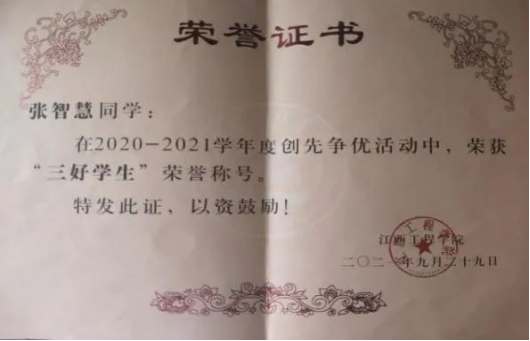 荣誉证书
张智慧同学：
在2020-2021学年度创先争优活动中，荣获
“三好学生”荣誉称号。
特发此证，以资鼓励！
江西工程学院
二〇二一年九月二十九日